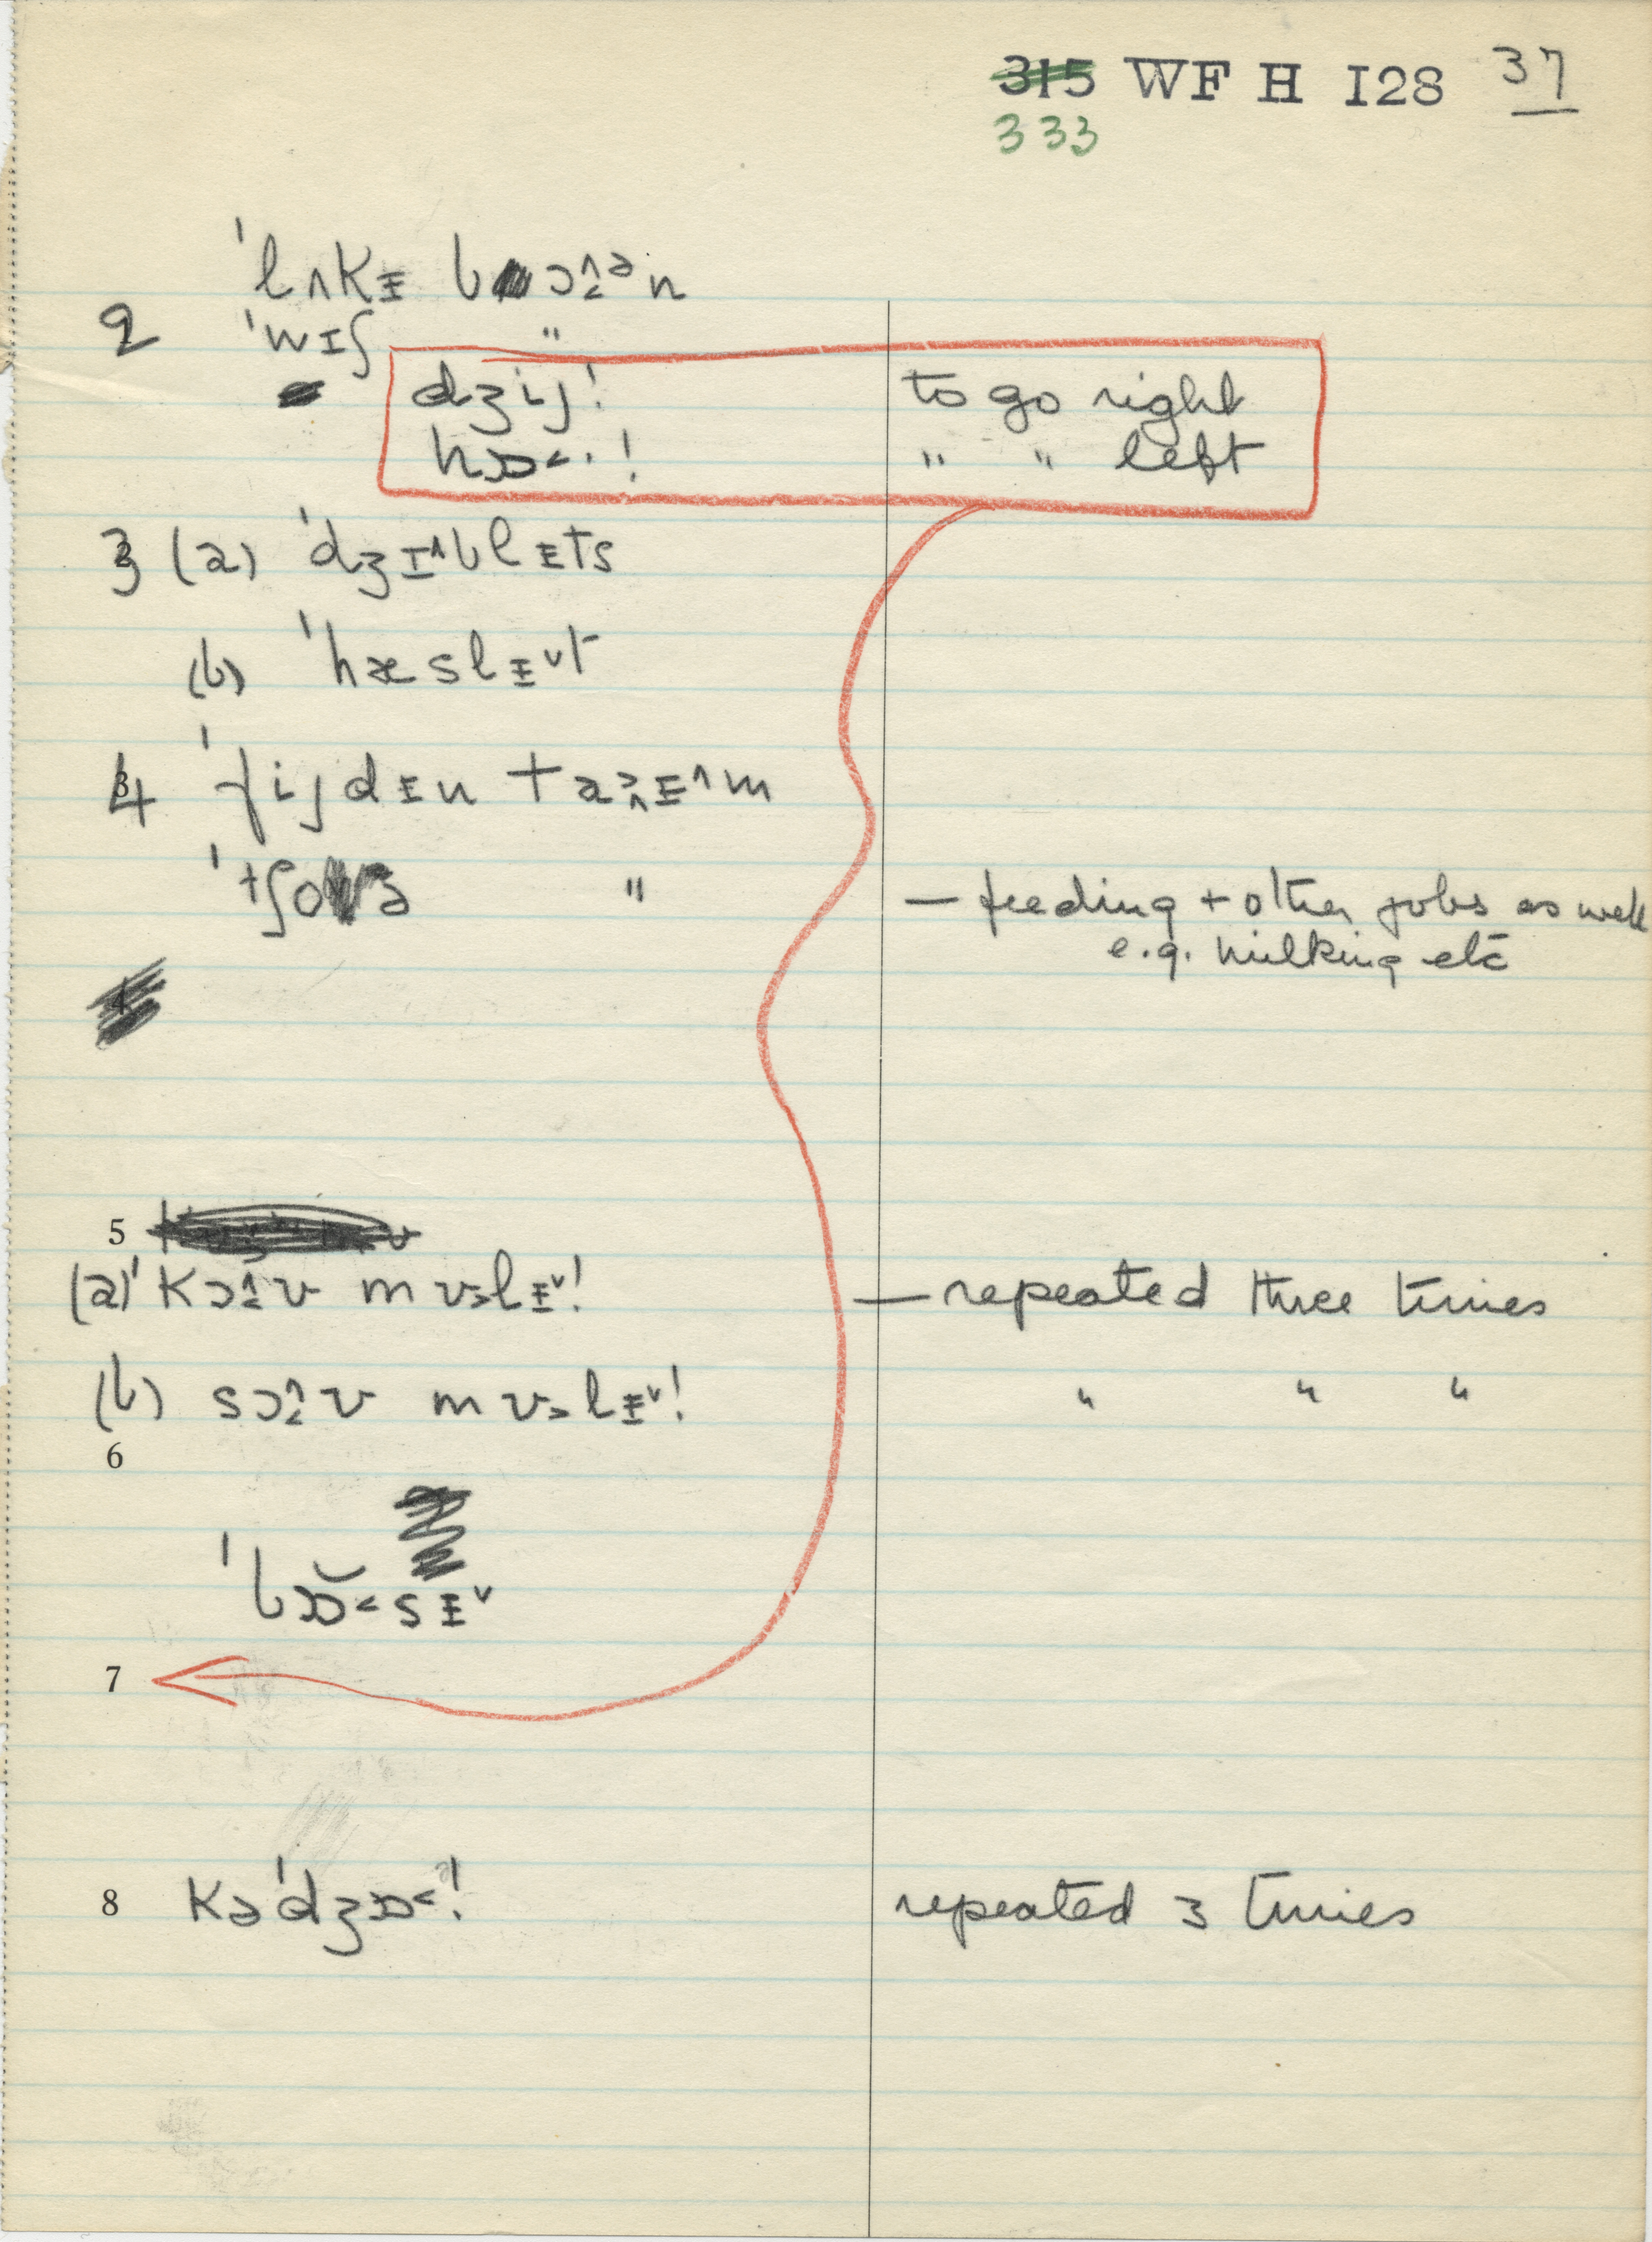 315 WF H 128 37
333
'lʌkɪ bɔ̝ːᵊn
2 'wɪʃ "
dʒij! to go right
hɒ<·! " " left
3 (a) 'dʒɪ^blɪts
(b) 'hæslɪˇt
4 'fijdɪn taɪ^m
'tʃoə " — feeding + other jobs as well
e.g. milking etc
5
(a) 'kɔʊ mʊlɪˇ! — repeated three times
(b) sɔʊ mʊlɪˇ! " " "
6
'bɒ̆<sɪˇ
7
8 kə'dʒɒ<! repeated 3 times